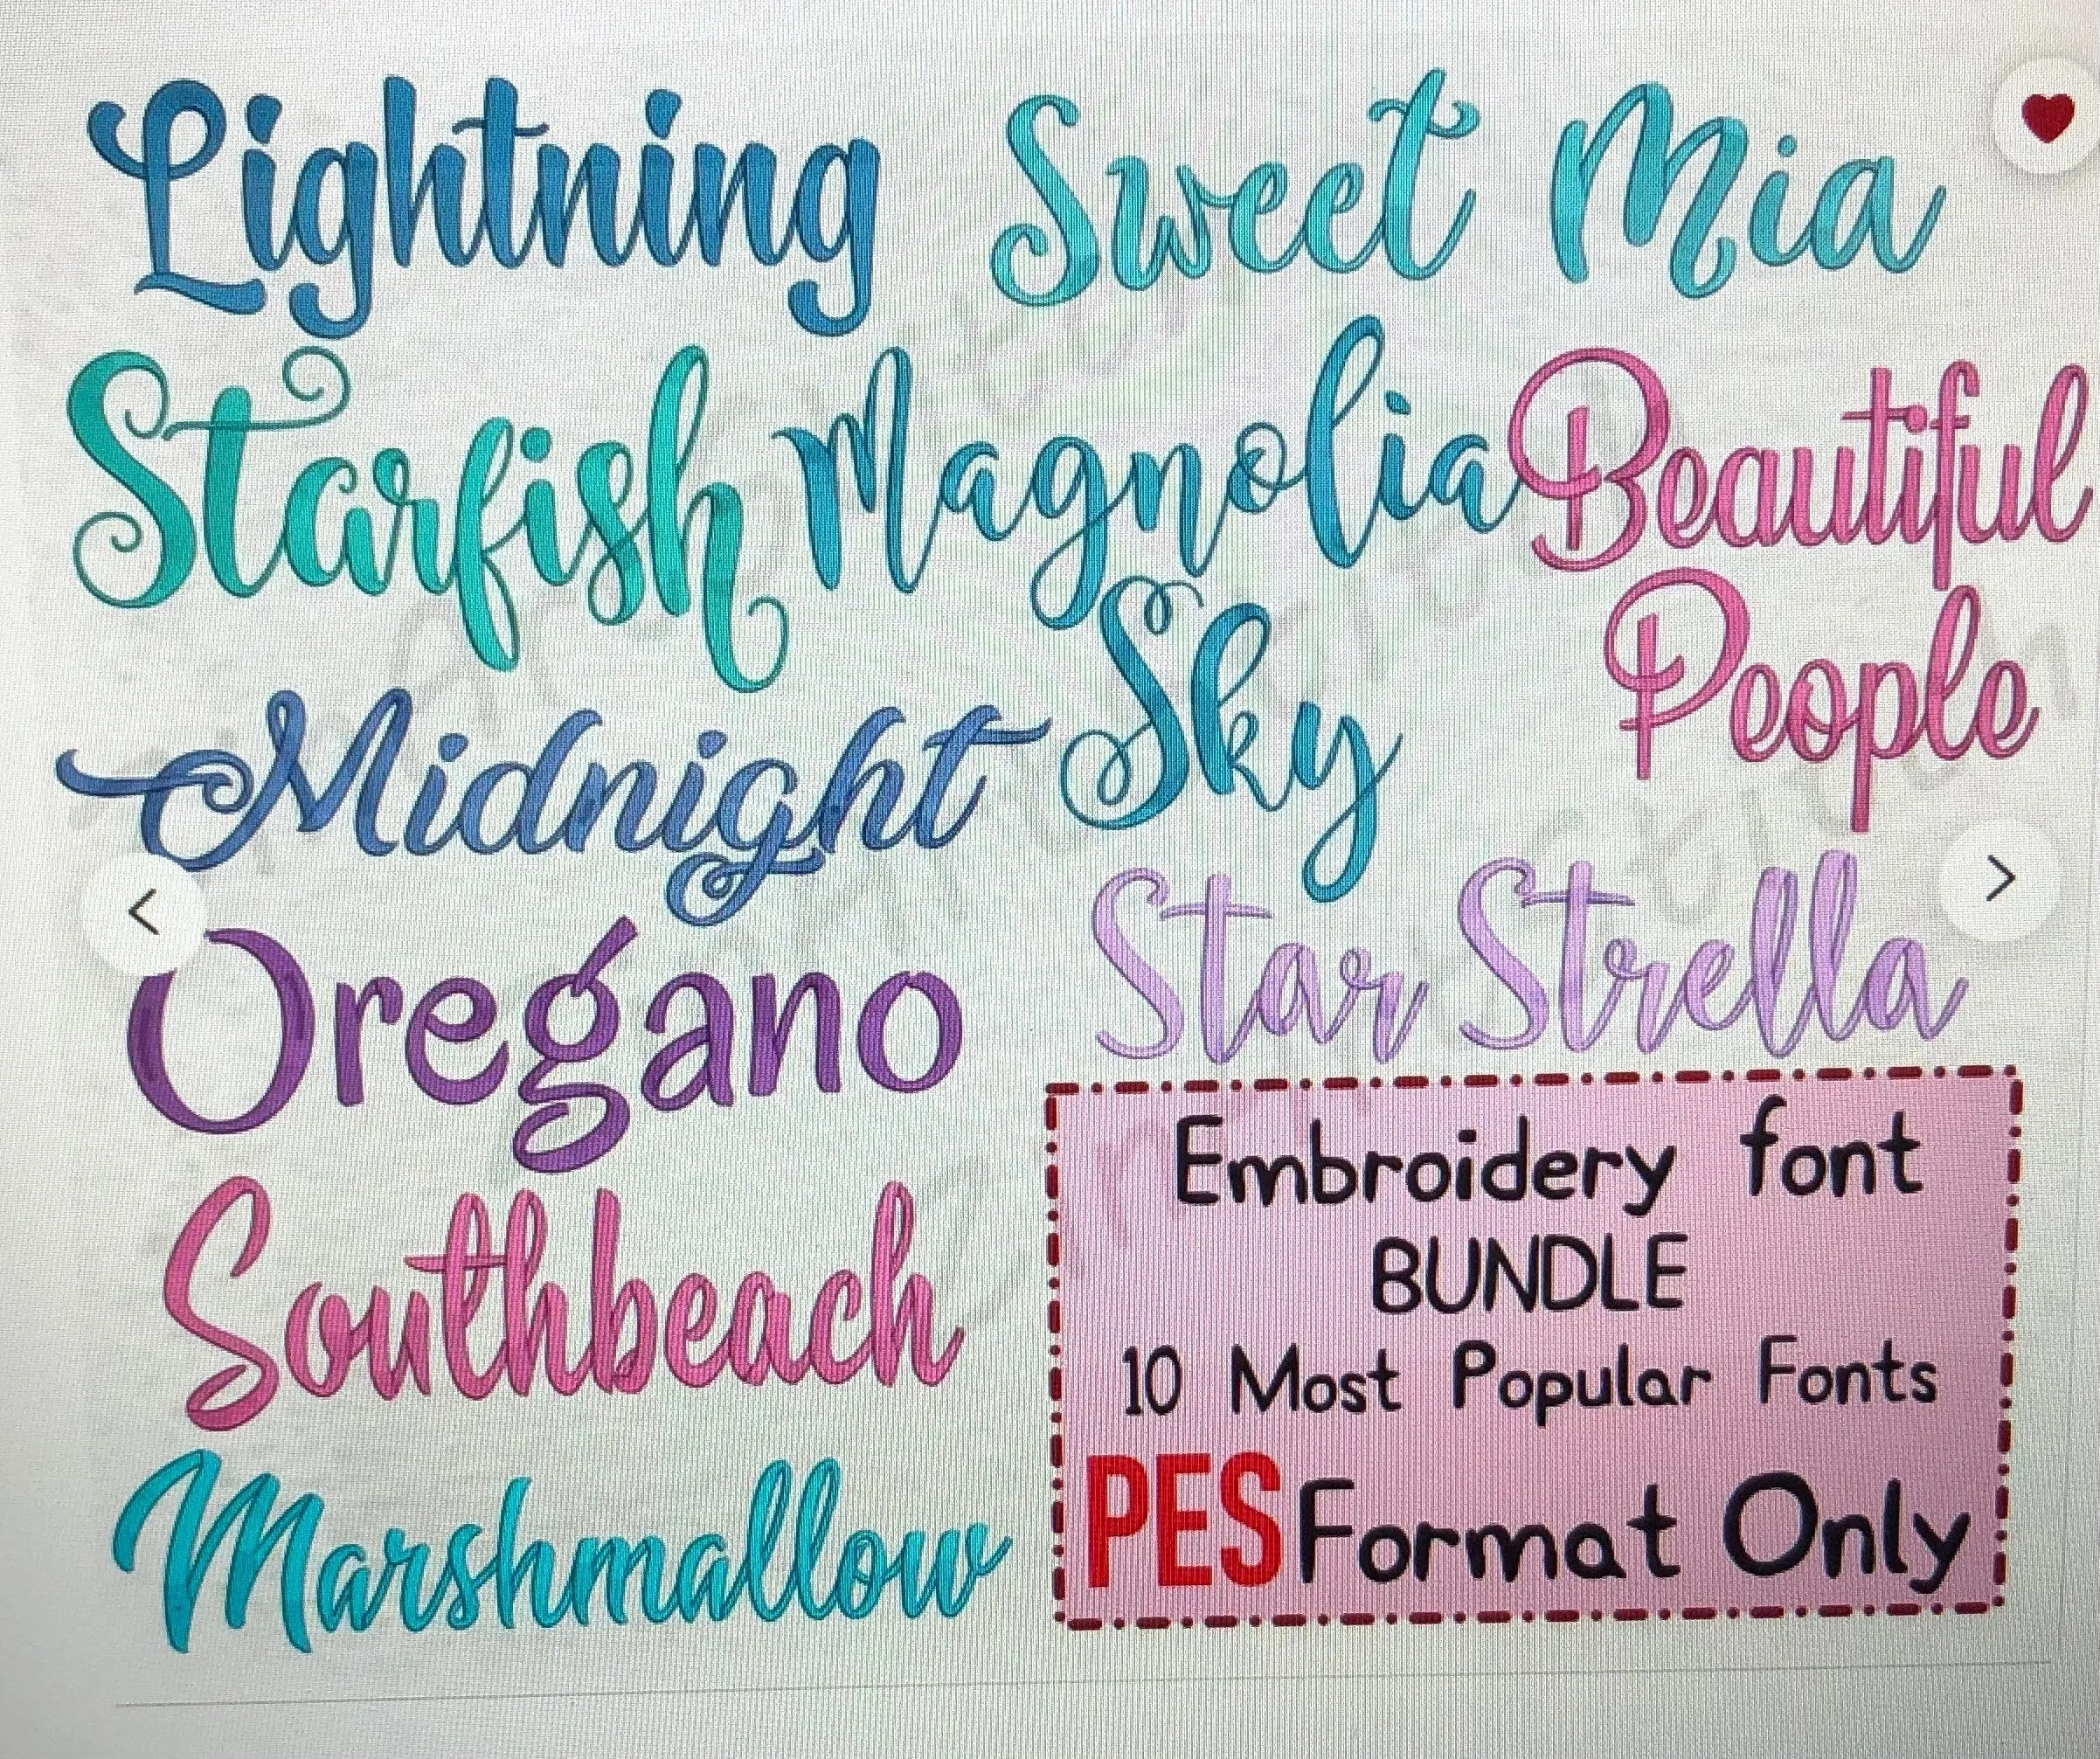 Lightning
Sweet Mia
Starfish
Magnolia
Sky
Beautiful
People
Midnight
Star Strella
Oregano
Southbeach
Marshmallow
Embroidery font
BUNDLE
10 Most Popular Fonts
PES Format Only